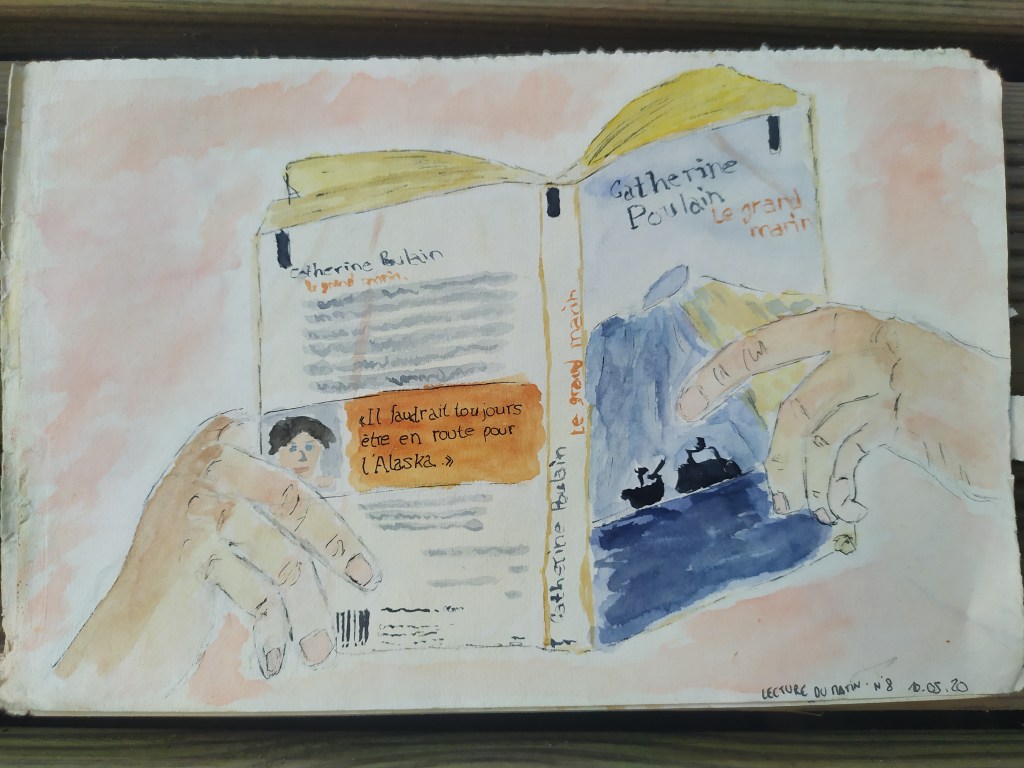 Catherine Poulain
le grand marin.
«Il faudrait toujours
être en route pour
l'Alaska.»
Catherine Poulain
Le grand marin
Catherine
Poulain
Le grand
marin
LECTURE DU MATIN. N°8 10.05.20